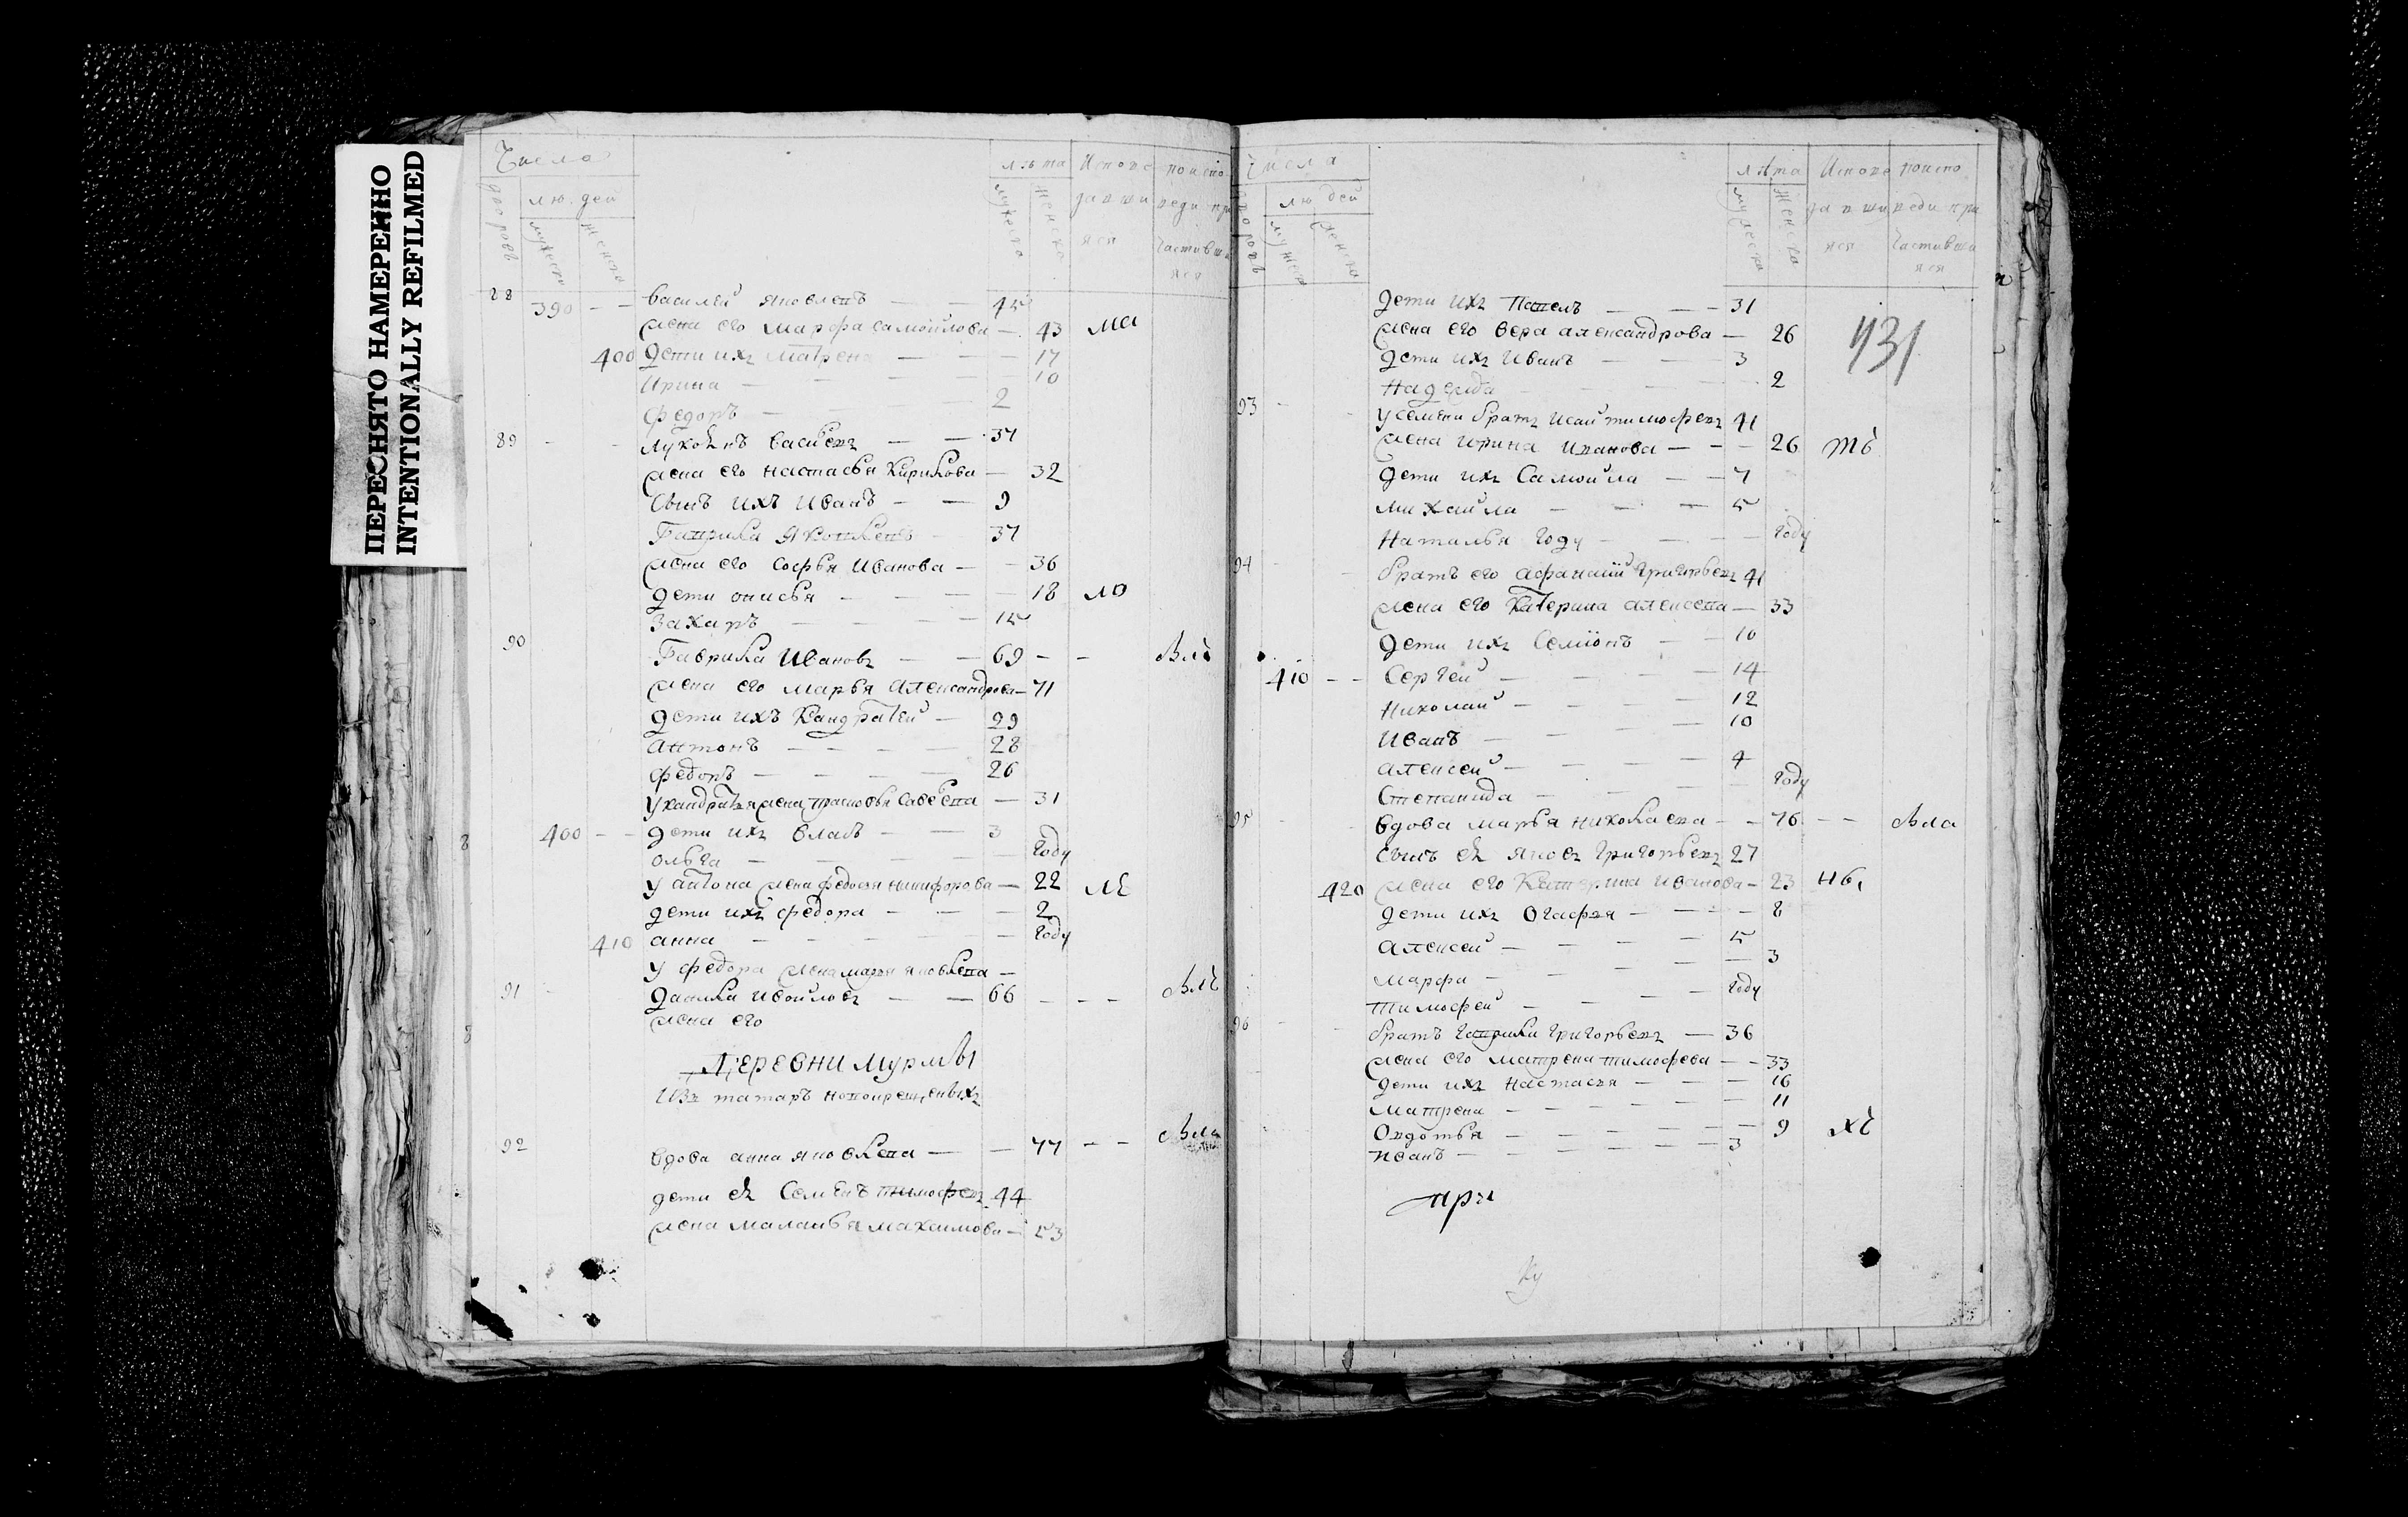 ПЕРЕСНЯТО НАМЕРЕННО
INTENTIONALLY REFILMED
Числа
людей
лѣта Испове поиспо
давши веди при
яся частивши
яся
дворовъ мужеска женска мужеска женска
88 390 — — Василей Яковлевъ — — 45
жена его Марфа Самойлова — 43 ма
400 дети ихъ Матрена — — — 17
Ирина — — — — 10
Федоръ — — — 2
89 - - Васильевъ — — 37
жена его Настасья Кирилова — 32
Сынъ ихъ Иванъ — — 9
Гаврила Яковлевъ — 37
жена его Софья Иванова — — 36
дети Анисья — — — — 18
Захаръ — — — — 15
90 Гаврила Ивановъ — — 69 - -
жена его Марья Александрова — 71
дети ихъ Кандратей — 29
Антонъ — — — — 28
Федоръ — — — — 26
у Кандратья жена Савельева — 31
400 — — дети ихъ Власъ — — 3
Ольга — — — — Году
у Антона жена Федосья Никифорова — 22
дети ихъ Федора — — — 2
410 Анна — — — — — Году
у Федора жена Марья Яковлева —
91 - Данила — — 66 - - -
жена его
Деревни Мурмы
Изъ татаръ новокрещеныхъ
92 Вдова Анна Яковлева — — 77 - -
дети ея Семенъ Тимофеевъ 44
жена Маланья Максимова — 53
Числа
людей
лѣта Испове поиспо
давши веди при
яся частивши
яся
дворовъ мужеска женска мужеска женска
дети ихъ Павелъ — — — 31
жена его Вера Александрова — 26
дети ихъ Иванъ — — 3
Надежда — — 2
731
93 - - у Семена братъ Исай Тимофеевъ 41
жена Ирина Иванова — — — 26
дети ихъ Самойла — — 7
Михайла — — — 5
Наталья Году — — — Году
94 - - братъ его Афанасий Григорьевъ 41
жена его Катерина Алексеева — 33
дети ихъ Семионъ — — 16
410 - - Сергей — — — 14
Николай — — — — 12
Иванъ — — — — 10
Алексей — — — — 4
Степанида — — — Году
95 - - Вдова Марья Николаева — — 76 — —
сынъ ея Яковъ Григорьевъ 27
420 жена его Катерина Иванова — 23
дети ихъ Огафья — — — — 8
Алексей — — — — 5
Марфа — — — — — 3
Тимофей — — — — Году
96 - - братъ Гаврила Григорьевъ — 36
жена его Матрена Тимофеева — — 33
дети ихъ Настасья — — — 16
Матрена — — — — — 11
Овдотья — — — — — 9
Иванъ — — — — — 3